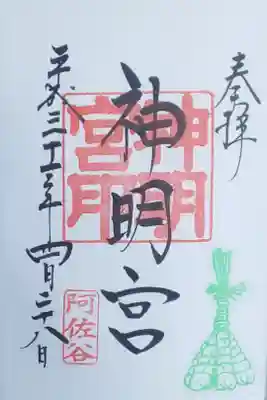 奉拝
神明宮
神明宮
阿佐谷
平成三十一年四月二十八日